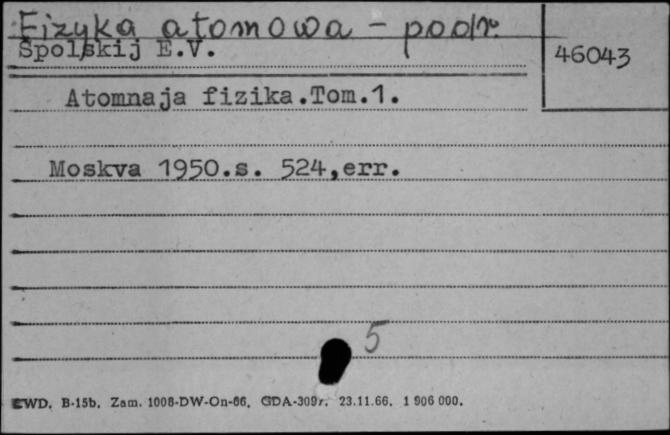 Fizyka atomowa - podr.
Spolskij E.V.
46043
Atomnaja fizika.Tom.1.
Moskva 1950.s. 524,err.
5
EWD. B-15b. Zam. 1008-DW-On-66. GDA-309r. 23.11.66. 1 906 000.